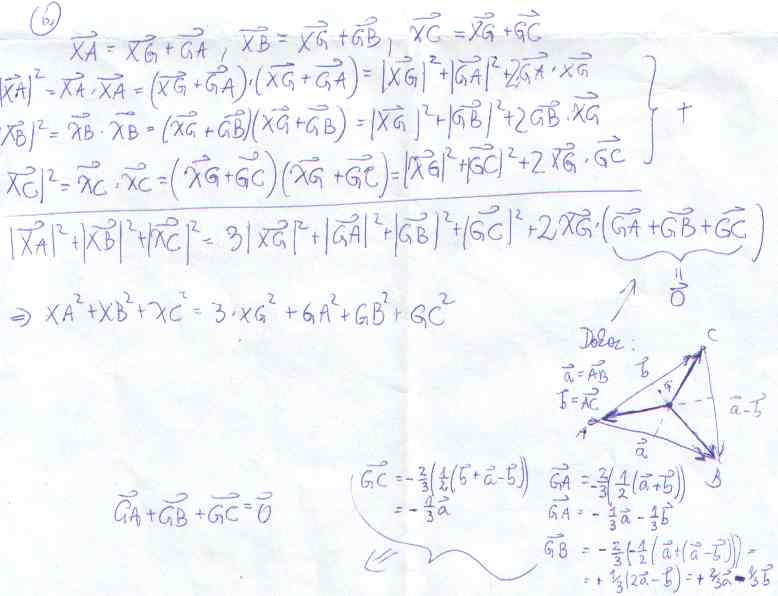 6.
$\overrightarrow{XA} = \overrightarrow{XG} + \overrightarrow{GA}$, $\overrightarrow{XB} = \overrightarrow{XG} + \overrightarrow{GB}$, $\overrightarrow{XC} = \overrightarrow{XG} + \overrightarrow{GC}$
$|\overrightarrow{XA}|^2 = \overrightarrow{XA} \cdot \overrightarrow{XA} = (\overrightarrow{XG} + \overrightarrow{GA}) \cdot (\overrightarrow{XG} + \overrightarrow{GA}) = |\overrightarrow{XG}|^2 + |\overrightarrow{GA}|^2 + 2\overrightarrow{GA} \cdot \overrightarrow{XG}$
$\overrightarrow{XB}|^2 = \overrightarrow{XB} \cdot \overrightarrow{XB} = (\overrightarrow{XG} + \overrightarrow{GB})(\overrightarrow{XG} + \overrightarrow{GB}) = |\overrightarrow{XG}|^2 + |\overrightarrow{GB}|^2 + 2\overrightarrow{GB} \cdot \overrightarrow{XG}$ +
$\overrightarrow{XC}|^2 = \overrightarrow{XC} \cdot \overrightarrow{XC} = (\overrightarrow{XG} + \overrightarrow{GC})(\overrightarrow{XG} + \overrightarrow{GC}) = |\overrightarrow{XG}|^2 + |\overrightarrow{GC}|^2 + 2\overrightarrow{XG} \cdot \overrightarrow{GC}$
$|\overrightarrow{XA}|^2 + |\overrightarrow{XB}|^2 + |\overrightarrow{XC}|^2 = 3|\overrightarrow{XG}|^2 + |\overrightarrow{GA}|^2 + |\overrightarrow{GB}|^2 + |\overrightarrow{GC}|^2 + 2\overrightarrow{XG} \cdot (\overrightarrow{GA} + \overrightarrow{GB} + \overrightarrow{GC})$
$= \vec{0}$
$\Rightarrow XA^2 + XB^2 + XC^2 = 3 \cdot XG^2 + GA^2 + GB^2 + GC^2$
Dokaz:
$\vec{a} = \overrightarrow{AB}$
$\vec{b} = \overrightarrow{AC}$
C
$\vec{b}$
G
$\vec{a} - \vec{b}$
A
$\vec{a}$
B
$\overrightarrow{GC} = -\frac{2}{3}(\frac{1}{2}(\vec{b} + \vec{a} - \vec{b}))$
$= -\frac{1}{3}\vec{a}$
$\overrightarrow{GA} = -\frac{2}{3}(\frac{1}{2}(\vec{a} + \vec{b}))$
$\overrightarrow{GA} = -\frac{1}{3}\vec{a} - \frac{1}{3}\vec{b}$
$\overrightarrow{GB} = -\frac{2}{3}(-\frac{1}{2}(\vec{a} + (\vec{a} - \vec{b}))) =$
$= +\frac{1}{3}(2\vec{a} - \vec{b}) = +\frac{2}{3}\vec{a} - \frac{1}{3}\vec{b}$
$\overrightarrow{GA} + \overrightarrow{GB} + \overrightarrow{GC} = \vec{0}$ ⇐